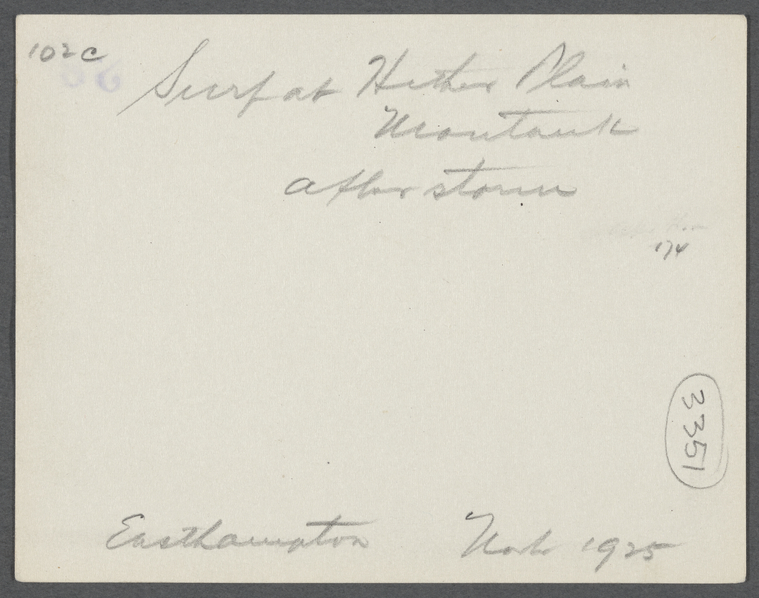 102c
Surf at Hither Plain
Montauk
after storm
174
3351
Easthampton Nov 1925